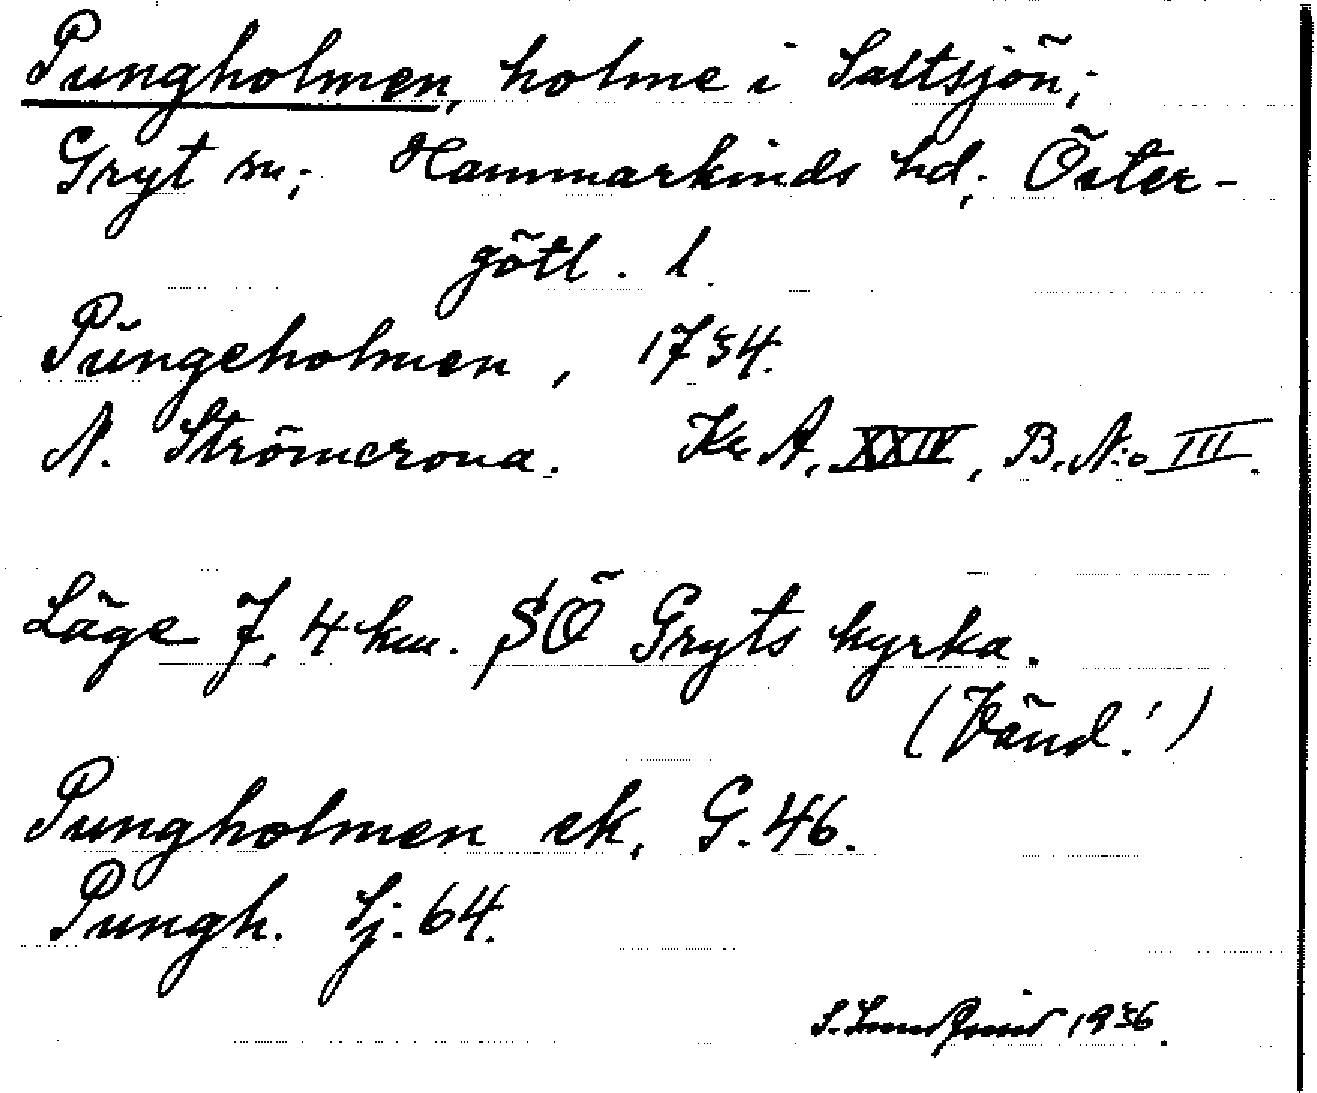 Pungholmen, holme i Saltsjön;
Gryt sn; Hammarkinds hd; Öster-
götl. l.
Pŭngeholmen, 1734.
N. Strömcrona. Kr. A. XXIV, B. N:o III.
Läge 7,4 km. SÖ Gryts kyrka.
(Vänd!)
Pungholmen ek. G. 46.
Pungh. Sj. 64.
S. 1936.